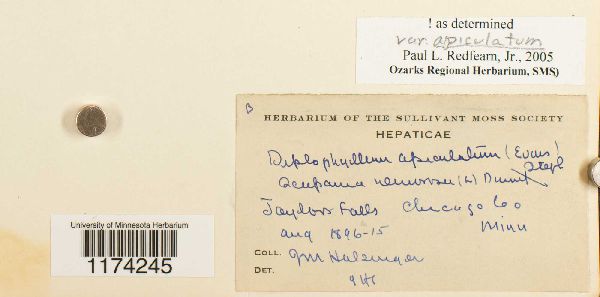 ! as determined
var. apiculatum
Paul L. Redfearn, Jr., 2005
Ozarks Regional Herbarium, SMS)
B
HERBARIUM OF THE SULLIVANT MOSS SOCIETY
HEPATICAE
Diplophyllum apiculatum (Evans)
Steph
nemorosa (L) Dumort
Taylors Falls Chicago Co
Aug 1896-15 Minn
COLL. JM Holzinger
DET.
University of Minnesota Herbarium
1174245